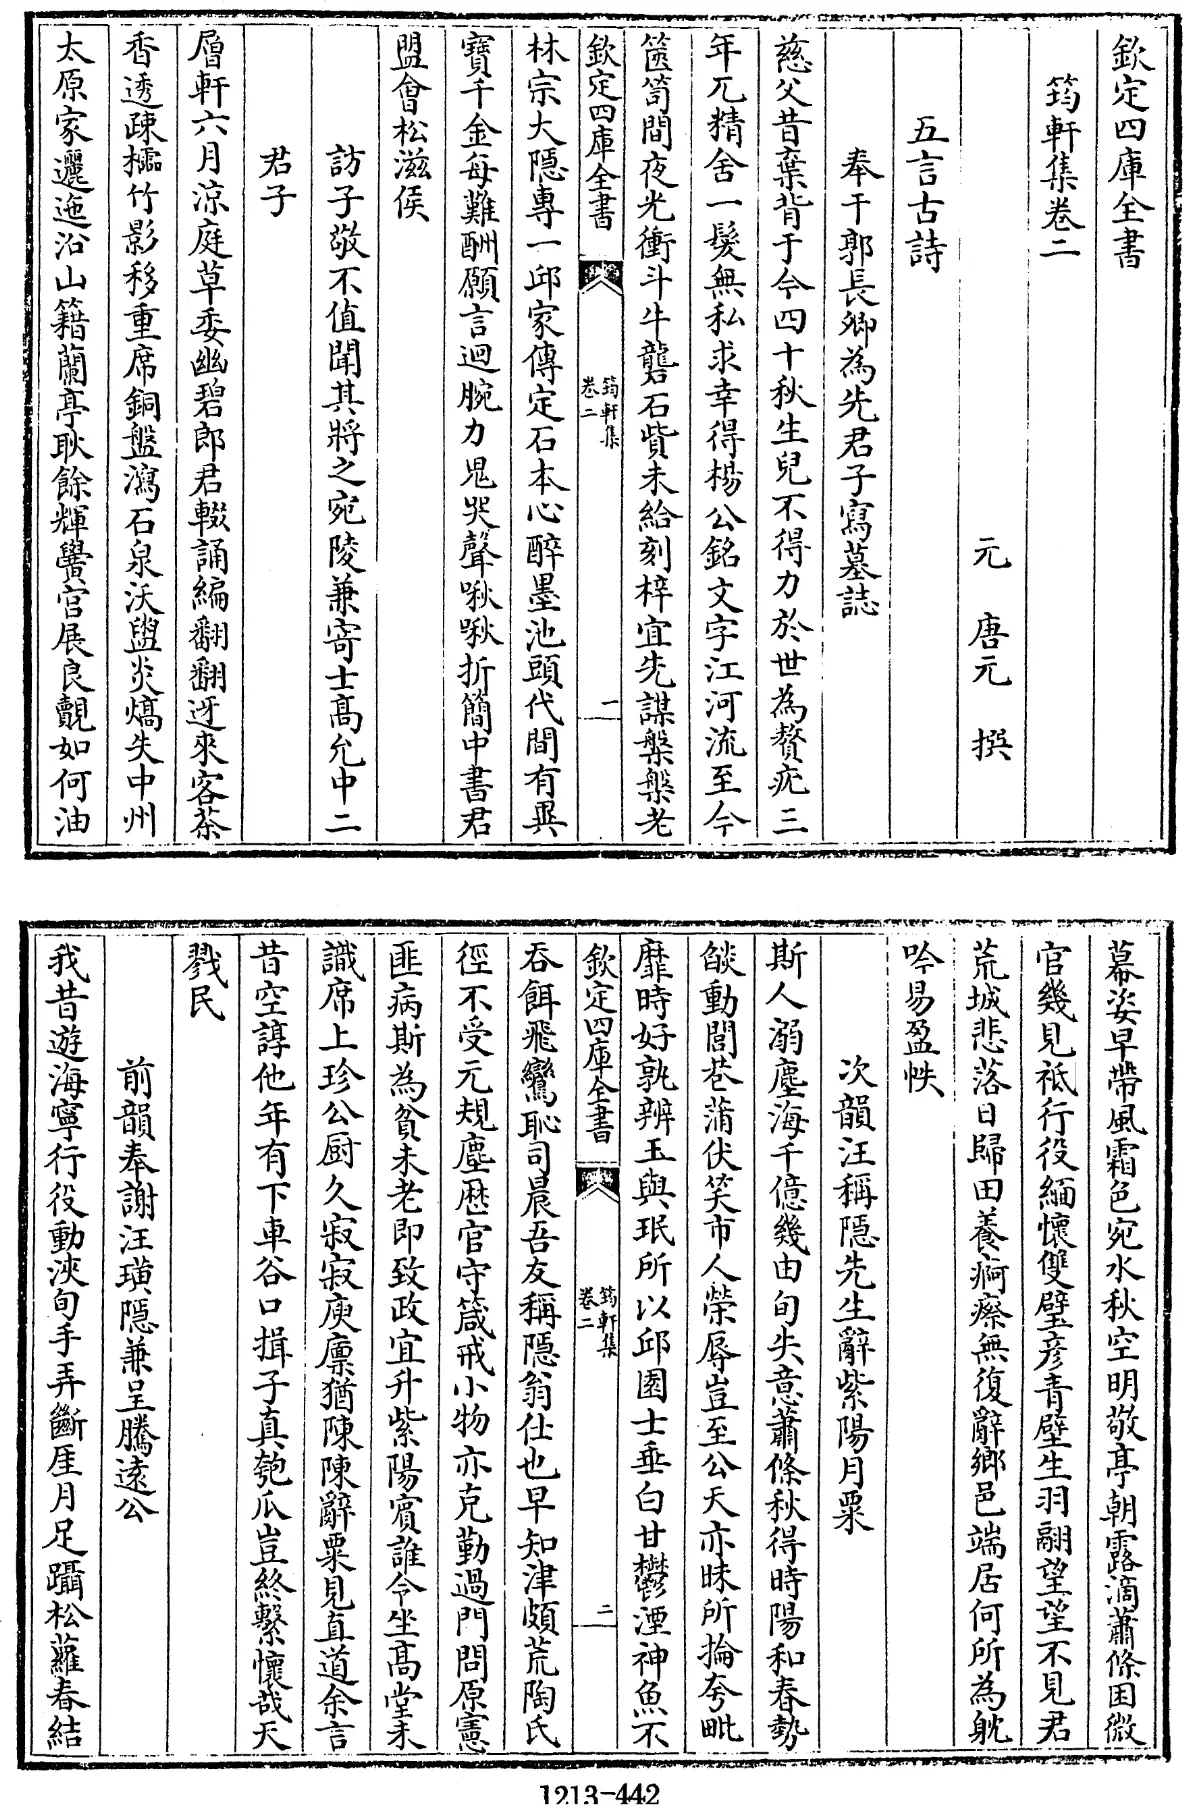 欽定四庫全書
筠軒集卷二
元 唐元 撰
五言古詩
奉干郭長卿為先君子寫墓誌
慈父昔棄背于今四十秋生兒不得力於世為贅疣三
年兀精舍一髮無私求幸得楊公銘文字江河流至今
篋笥間夜光衝斗牛礱石貲未給刻梓宜先謀槃槃老
欽定四庫全書
筠軒集
卷二
一
林宗大隱專一邱家傳定石本心醉墨池頭代間有異
寶千金每難酬願言迴腕力鬼哭聲啾啾折簡中書君
盟會松滋侯
訪子敬不值聞其將之宛陵兼寄士高允中二
君子
層軒六月涼庭草委幽碧郎君輟誦編翻翻迓來客茶
香透疎櫺竹影移重席銅盤瀉石泉沃盥炎熇失中州
太原家邐迤沿山籍蘭亭耿餘輝黌宮展良覿如何油
幕姿早帶風霜色宛水秋空明敬亭朝露滴蕭條困微
官幾見祗行役緬懷雙璧彥青壁生羽翮望望不見君
荒城悲落日歸田養痾瘵無復辭鄉邑端居何所為觥
吟易盈帙
次韻汪稱隱先生辭紫陽月粟
斯人溺塵海千億幾由旬失意蕭條秋得時陽和春勢
燄動閭巷蒲伏笑市人榮辱豈至公天亦昧所掄夸毗
靡時好孰辨玉與珉所以邱園士垂白甘鬱湮神魚不
欽定四庫全書
筠軒集
卷二
二
吞餌飛鸞恥司晨吾友稱隱翁仕也早知津頗荒陶氏
徑不受元規塵歷官守箴戒小物亦克勤過門問原憲
匪病斯為貧未老即致政宜升紫陽賓誰令坐高堂未
識席上珍公厨久寂寂庾廪猶陳陳辭粟見直道余言
昔空諄他年有下車谷口揖子真匏瓜豈終繫懷哉天
戮民
前韻奉謝汪璜隱兼呈騰遠公
我昔遊海寧行役動浹旬手弄斷厓月足躡松蘿春結
1213-442